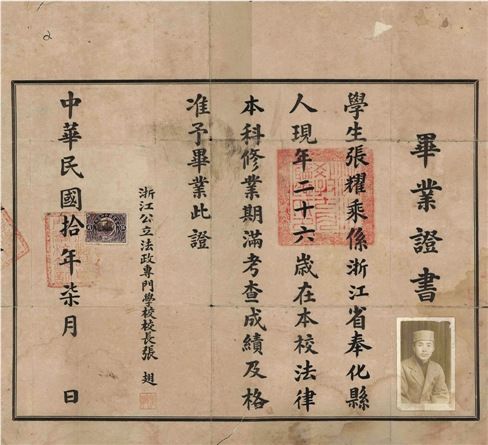 畢業證書
學生張耀乘係浙江省奉化縣
人現年二十六歲在本校法律
本科修業期滿考查成績及格
准予畢業此證
浙江公立法政專門學校校長張
中華民國拾年柒月 日
2